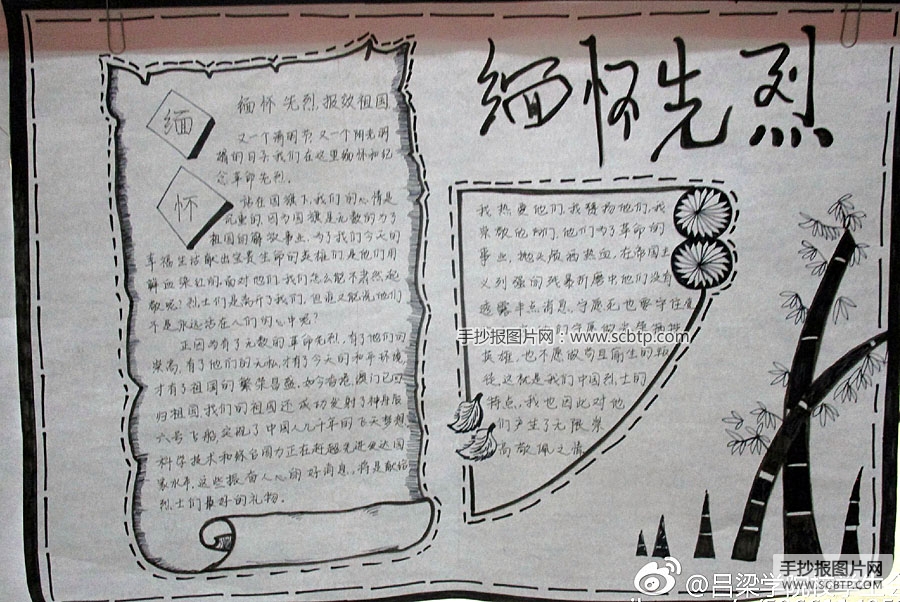 缅怀先烈
缅
怀
缅怀先烈,报效祖国
又一个清明节,又一个阳光明
媚的日子,我们在这里缅怀和纪
念革命先烈。
站在国旗下,我们的心情是
沉重的,因为国旗是无数的为了
祖国的解放事业,为了我们今天的
幸福生活献出宝贵生命的英雄们是他们用
鲜血染红的,面对他们,我们怎么能不肃然起
敬呢?烈士们是离开了我们,但谁又能说他们
不是永远活在人们的心中呢?
正因为有了无数的革命先烈,有了他们的
崇高,有了他们的无私,才有了今天的和平环境
才有了祖国的繁荣昌盛,如今香港,澳门已回
归祖国,我们的祖国还成功发射了神舟
六号飞船,实现了中国人几千年的飞天梦想
科学技术和综合国力正在赶超先进发达国
家水平,这些振奋人心的好消息,将是献给
烈士们最好的礼物。
我热爱他们,我赞扬他们,我
崇敬他们,他们为了革命的
事业,抛头颅洒热血,在帝国主
义列强的残暴折磨中他们没有
透露半点消息,宁愿死也要守住
们宁愿做
英雄,也不愿做苟且偷生的
徒,这就是我们中国烈士的
特点,我也因此对他
们产生了无限崇
高敬佩之情
手抄报图片网:www.scbtp.com
手抄报图片网
WWW.SCBTP.COM
@吕梁学院